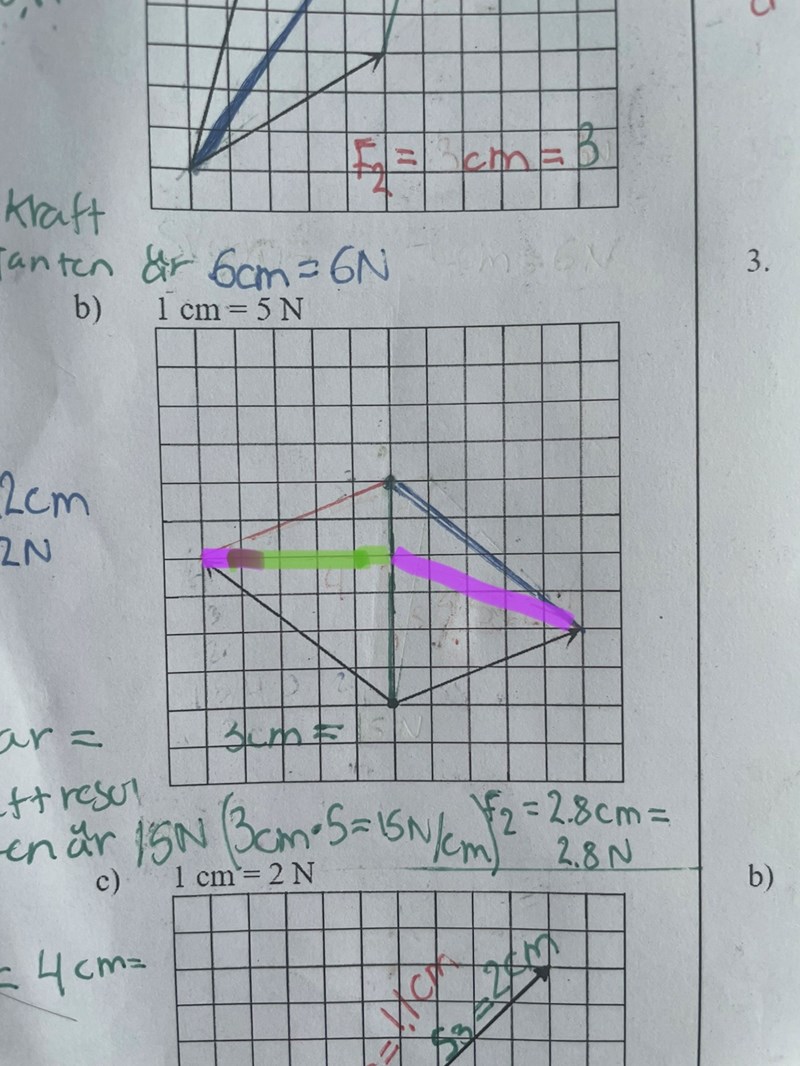 F₂ = 3 cm = 3
kraft
anten är 6cm = 6N
3.
b) 1 cm = 5 N
2cm
2N
3cm = 15 N
ar =
en är 15N (3cm·5=15N/cm)
F₂ = 2.8cm =
2.8 N
c) 1 cm = 2 N
b)
= 4cm=
= 1.1cm
S3 = 2cm